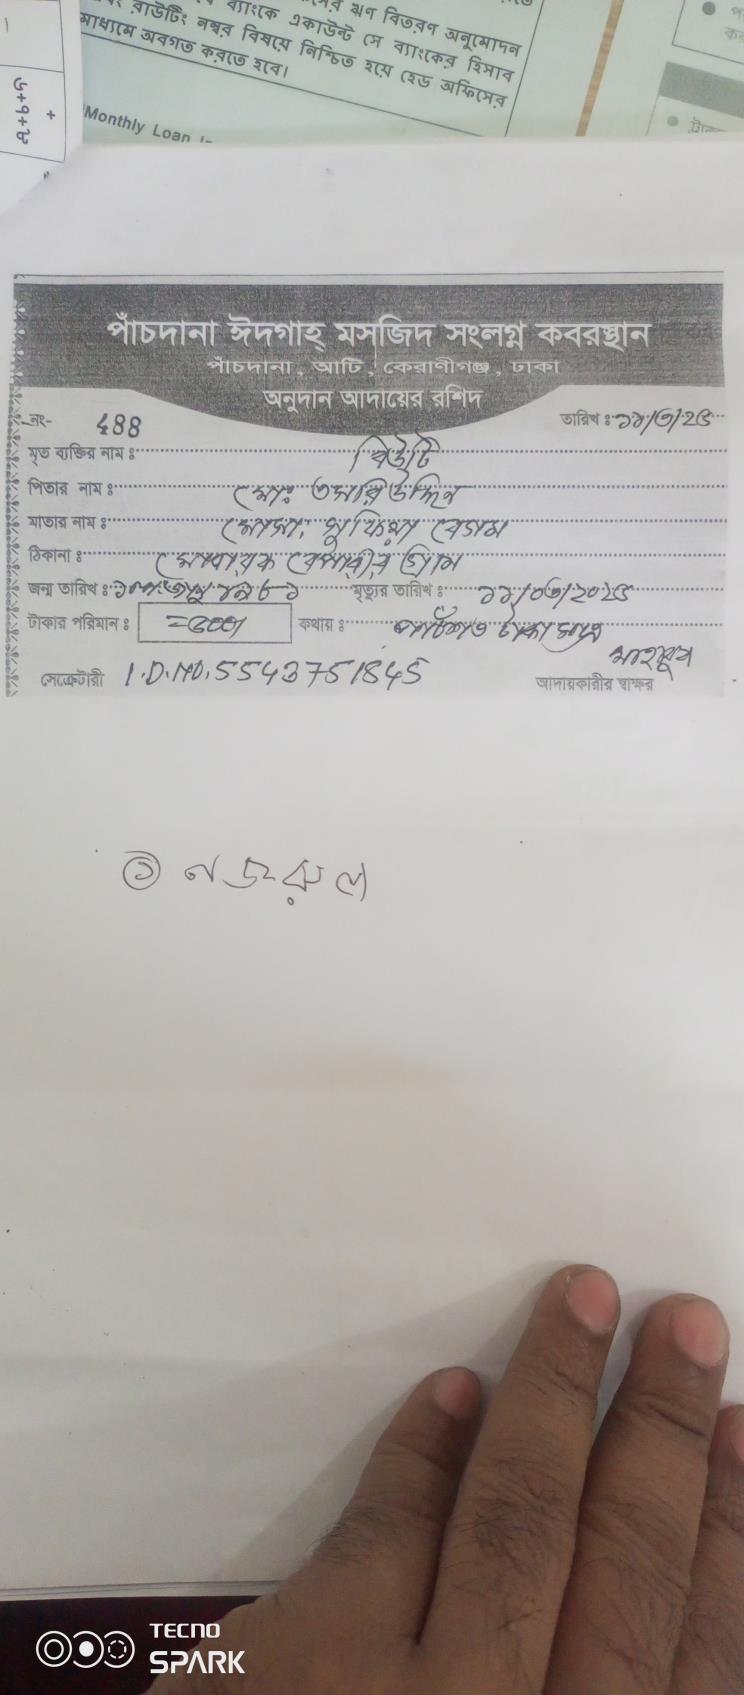 ঋণ বিতরণ অনুমোদন
ব্যাংকে একাউন্ট সে ব্যাংকের হিসাব
রাউটিং নম্বর বিষয়ে নিশ্চিত হয়ে হেড অফিসের
মাধ্যমে অবগত করতে হবে।
Monthly Loan
পাঁচদানা ঈদগাহ্ মসজিদ সংলগ্ন কবরস্থান
পাঁচদানা, আটি, কেরাণীগঞ্জ, ঢাকা
অনুদান আদায়ের রশিদ
নং- 488 তারিখ ঃ
মৃত ব্যক্তির নাম ঃ বিউটি
পিতার নাম ঃ মোঃ
মাতার নাম ঃ মোসা. সুফিয়া বেগম
ঠিকানা ঃ মোবারক বেপারীর গ্রাম
জন্ম তারিখ ঃ মৃত্যুর তারিখ ঃ
টাকার পরিমান ঃ কথায় ঃ টাকা মাত্র
সেক্রেটারী I.D.NO.5543751845 আদায়কারীর স্বাক্ষর
① নজরুল
TECNO
SPARK